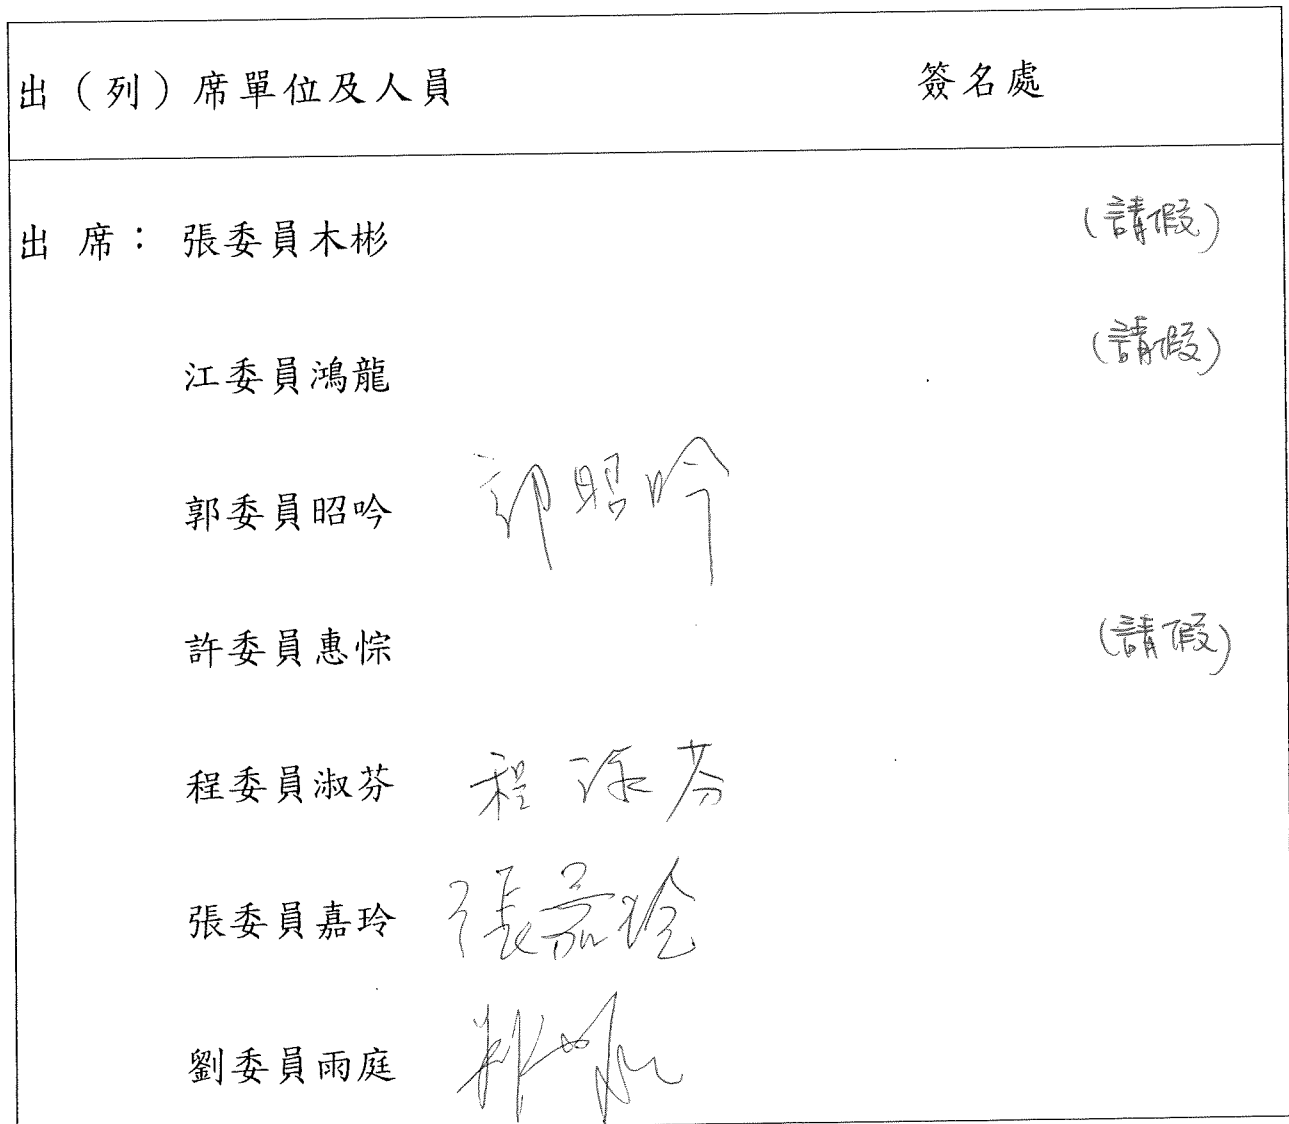 出（列）席單位及人員 簽名處
出 席： 張委員木彬 (請假)
江委員鴻龍 (請假)
郭委員昭吟 郭昭吟
許委員惠悰 (請假)
程委員淑芬 程淑芬
張委員嘉玲 張嘉玲
劉委員雨庭